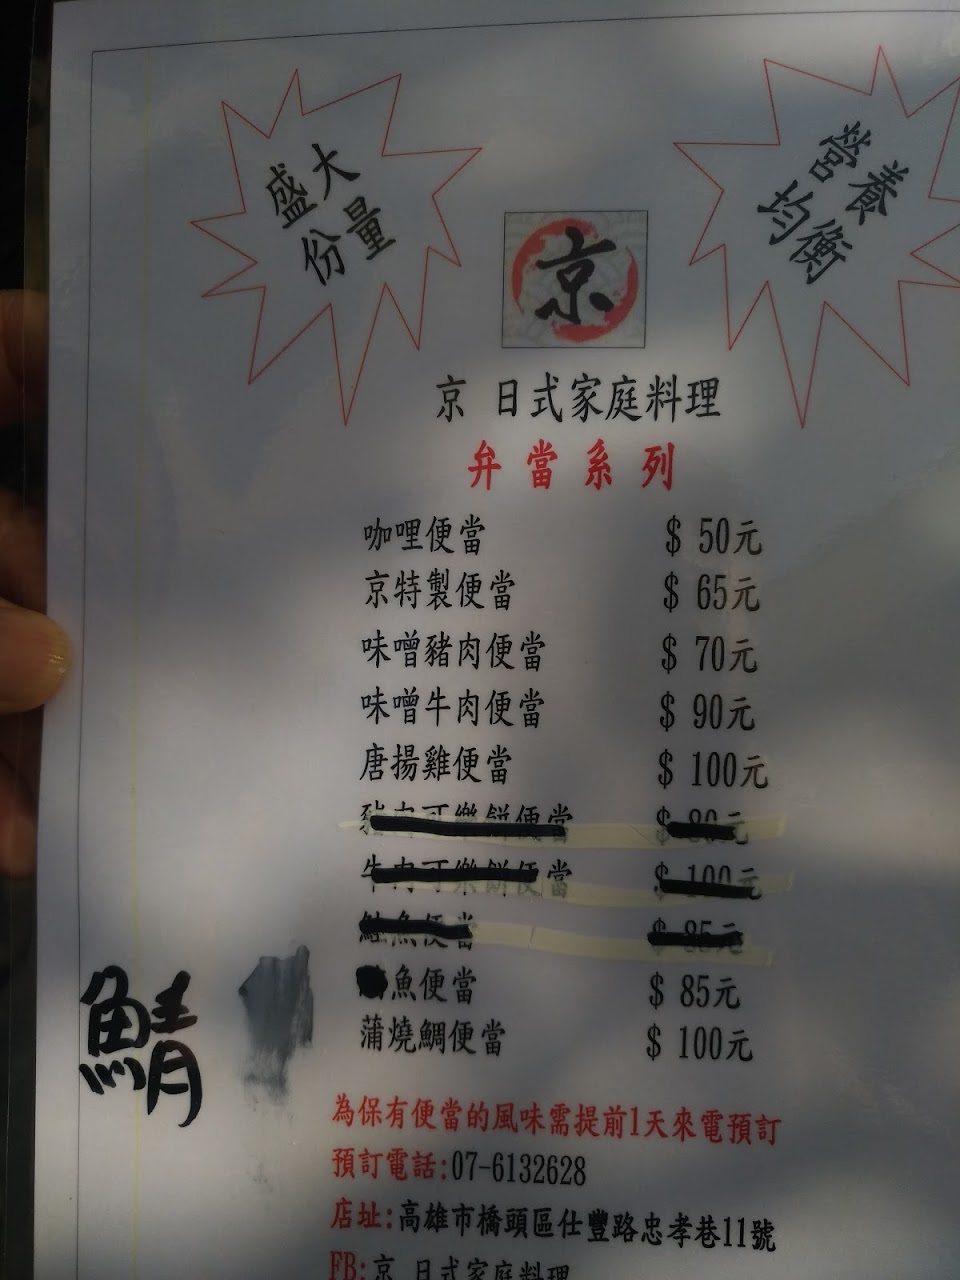 盛大
份量
營養
均衡
京
京 日式家庭料理
弁當系列
咖哩便當 $ 50元
京特製便當 $ 65元
味噌豬肉便當 $ 70元
味噌牛肉便當 $ 90元
唐揚雞便當 $ 100元
豬肉可樂餅便當 $ 80元
牛肉可樂餅便當 $ 100元
鮭魚便當 $ 85元
魚便當 $ 85元
鯖
蒲燒鯛便當 $ 100元
為保有便當的風味需提前1天來電預訂
預訂電話:07-6132628
店址:高雄市橋頭區仕豐路忠孝巷11號
FB:京 日式家庭料理